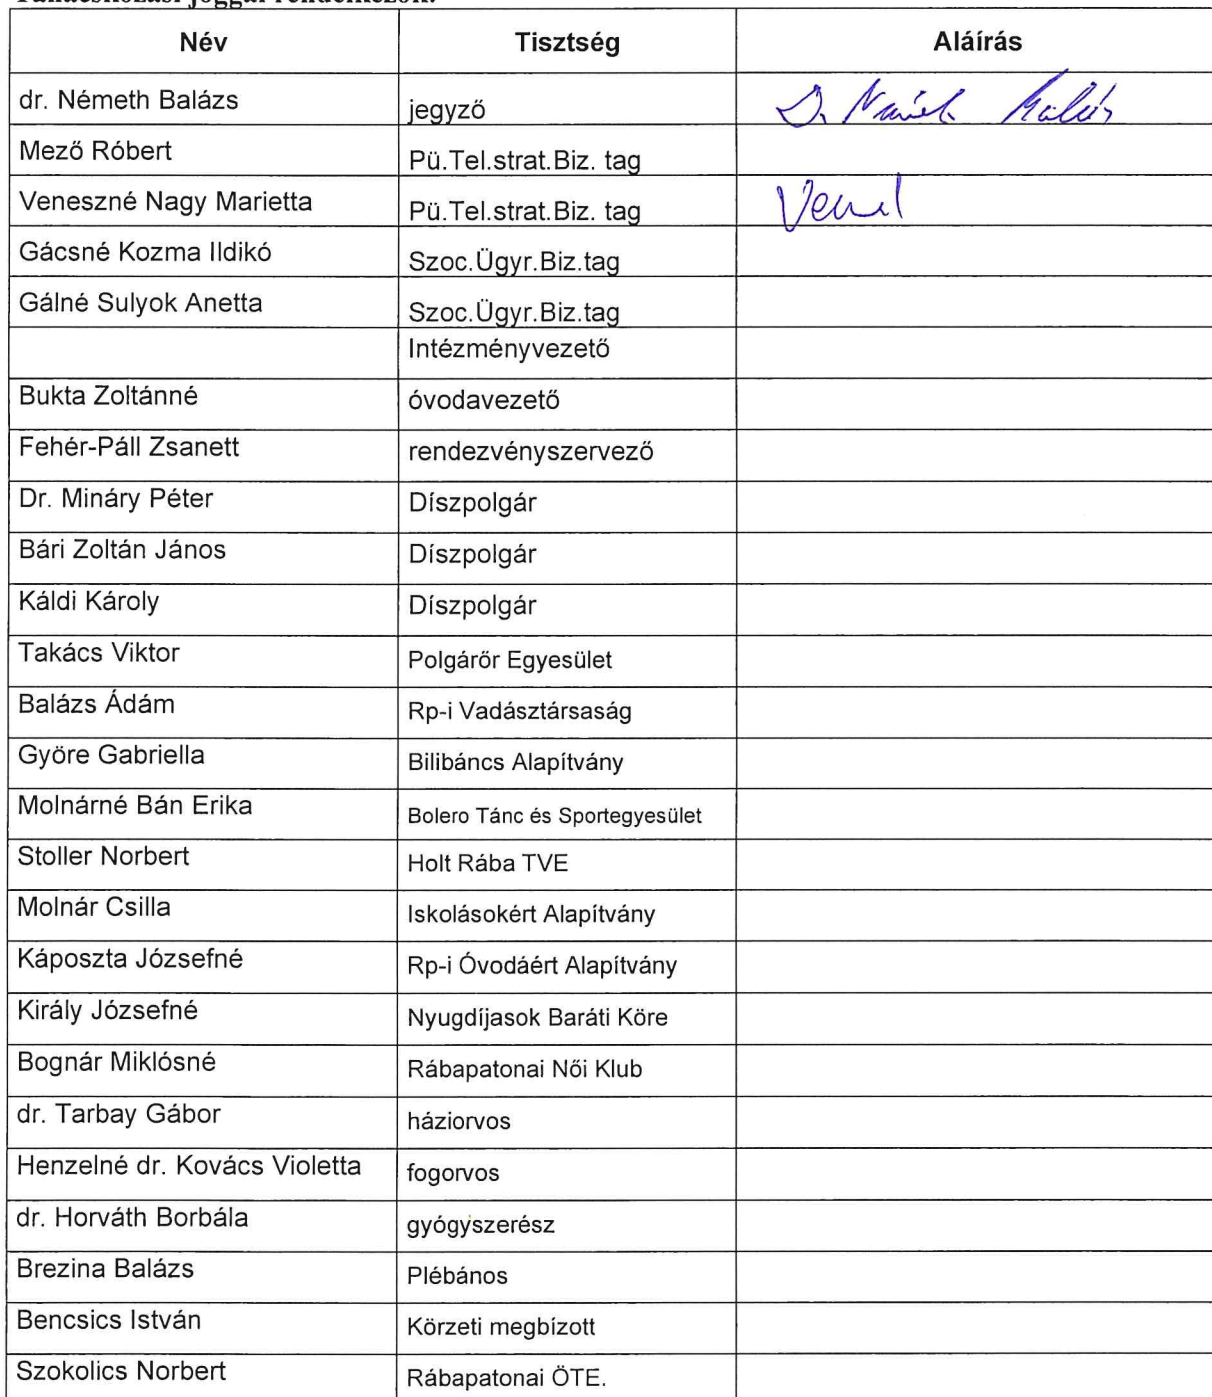 Tanácskozási joggal rendelkezők:
Név Tisztség Aláírás
dr. Németh Balázs jegyző Dr. Németh Balázs
Mező Róbert Pü.Tel.strat.Biz. tag
Veneszné Nagy Marietta Pü.Tel.strat.Biz. tag
Gácsné Kozma Ildikó Szoc.Ügyr.Biz.tag
Gálné Sulyok Anetta Szoc.Ügyr.Biz.tag
Intézményvezető
Bukta Zoltánné óvodavezető
Fehér-Páll Zsanett rendezvényszervező
Dr. Mináry Péter Díszpolgár
Bári Zoltán János Díszpolgár
Káldi Károly Díszpolgár
Takács Viktor Polgárőr Egyesület
Balázs Ádám Rp-i Vadásztársaság
Györe Gabriella Bilibáncs Alapítvány
Molnárné Bán Erika Bolero Tánc és Sportegyesület
Stoller Norbert Holt Rába TVE
Molnár Csilla Iskolásokért Alapítvány
Káposzta Józsefné Rp-i Óvodáért Alapítvány
Király Józsefné Nyugdíjasok Baráti Köre
Bognár Miklósné Rábapatonai Női Klub
dr. Tarbay Gábor háziorvos
Henzelné dr. Kovács Violetta fogorvos
dr. Horváth Borbála gyógyszerész
Brezina Balázs Plébános
Bencsics István Körzeti megbízott
Szokolics Norbert Rábapatonai ÖTE.